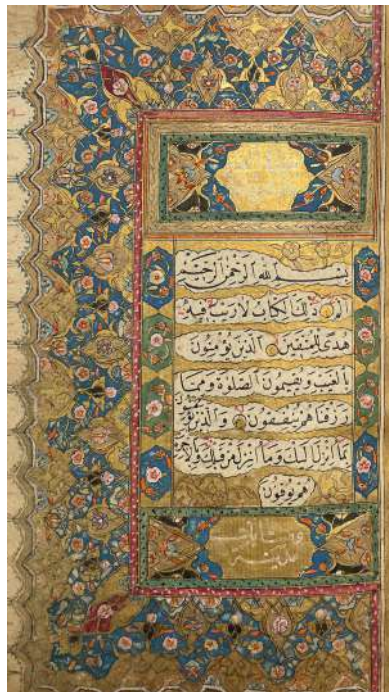 بسم الله الرحمن الرحيم
الم ذلك الكتاب لا ريب فيه
هدى للمتقين الذين يؤمنون
بالغيب ويقيمون الصلوة ومما
رزقناهم ينفقون والذين يؤمنون
بما انزل اليك وما انزل من قبلك وبالاخرة
هم يوقنون
مدنية